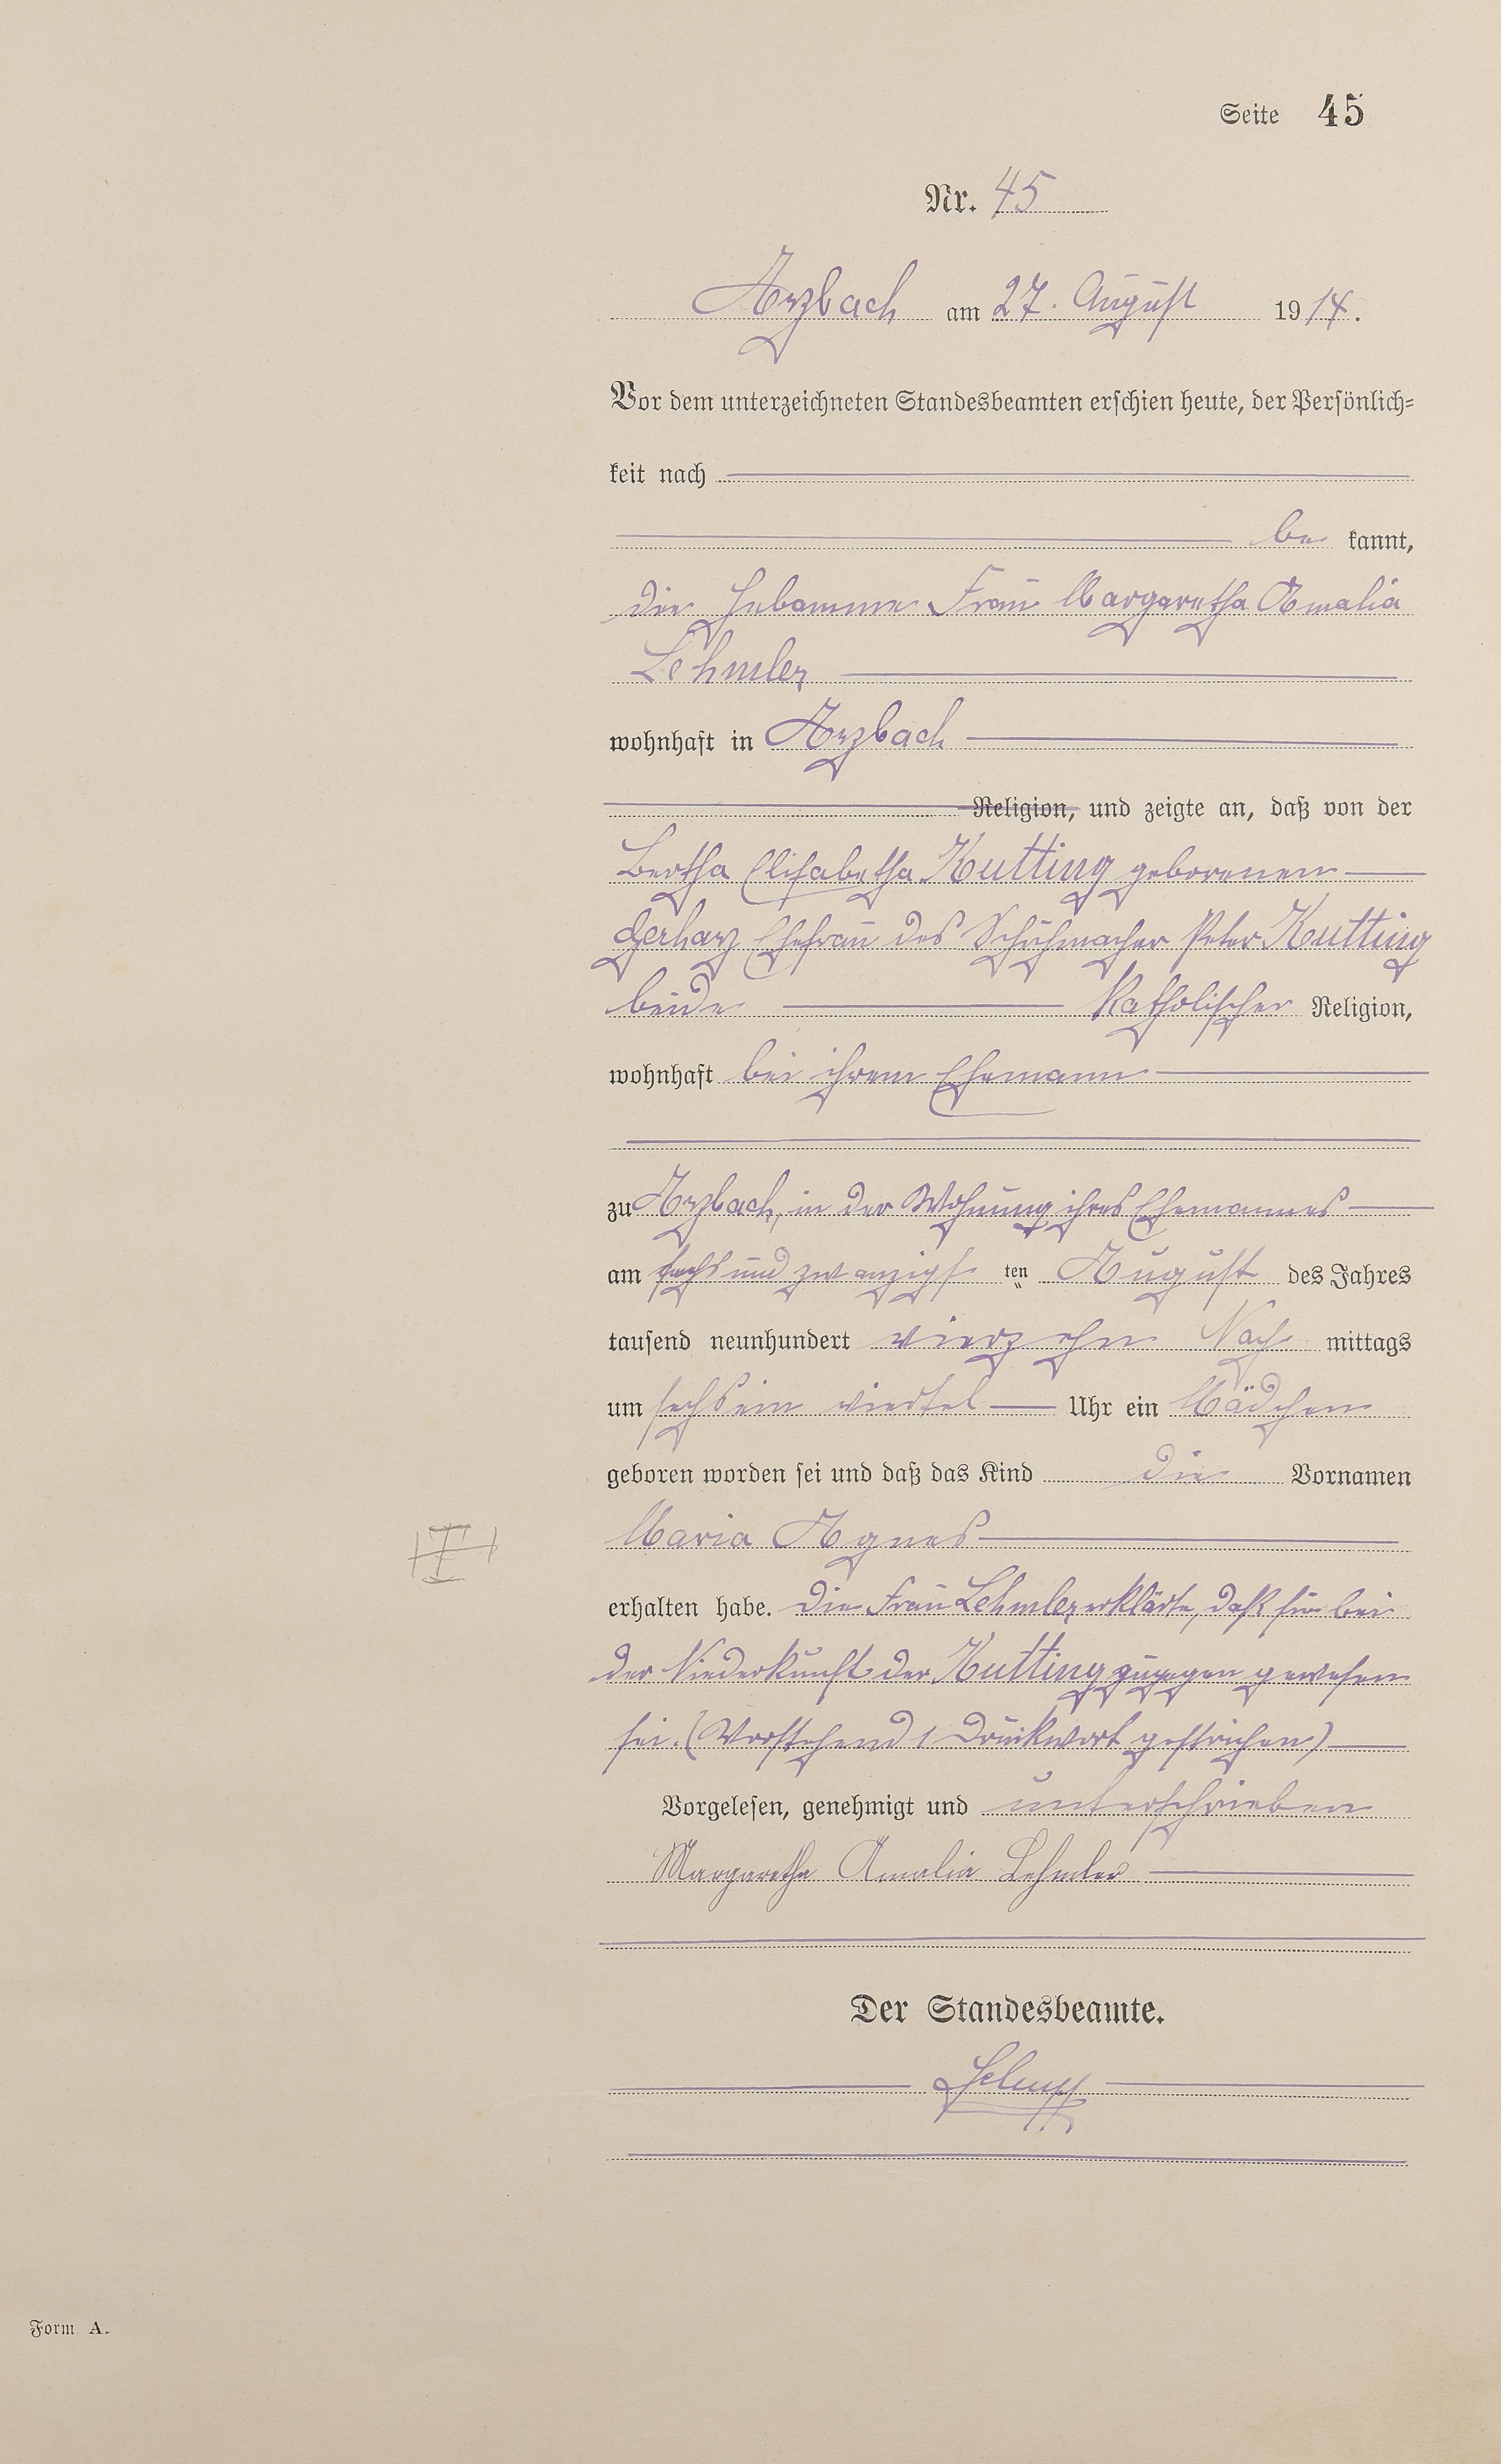 Seite 45
Nr. 45
Arzbach am 27. August 1914.
Vor dem unterzeichneten Standesbeamten erschien heute, der Persönlich=
keit nach
be kannt,
die Hebamme Frau Margaretha Amalia
Lehmler
wohnhaft in Arzbach
Religion, und zeigte an, daß von der
Bertha Elisabetha Kutting geborenen
Gerharz Ehefrau des Schuhmacher Peter Kutting
beide katholischer Religion,
wohnhaft bei ihrem Ehemann
zu Arzbach, in der Wohnung ihres Ehemannes
am sechs und zwanzigs ten August des Jahres
tausend neunhundert vierzehn Nach mittags
um sechs ein viertel Uhr ein Mädchen
geboren worden sei und daß das Kind die Vornamen
Maria Agnes
erhalten habe. Die Frau Lehmler erklärte, daß sie bei
der Niederkunft der Kutting zugegen gewesen
sei. (Vorstehend 1 Druckwort gestrichen)
Vorgelesen, genehmigt und unterschrieben
Margaretha Amalia Lehmler
Der Standesbeamte.
Form A.